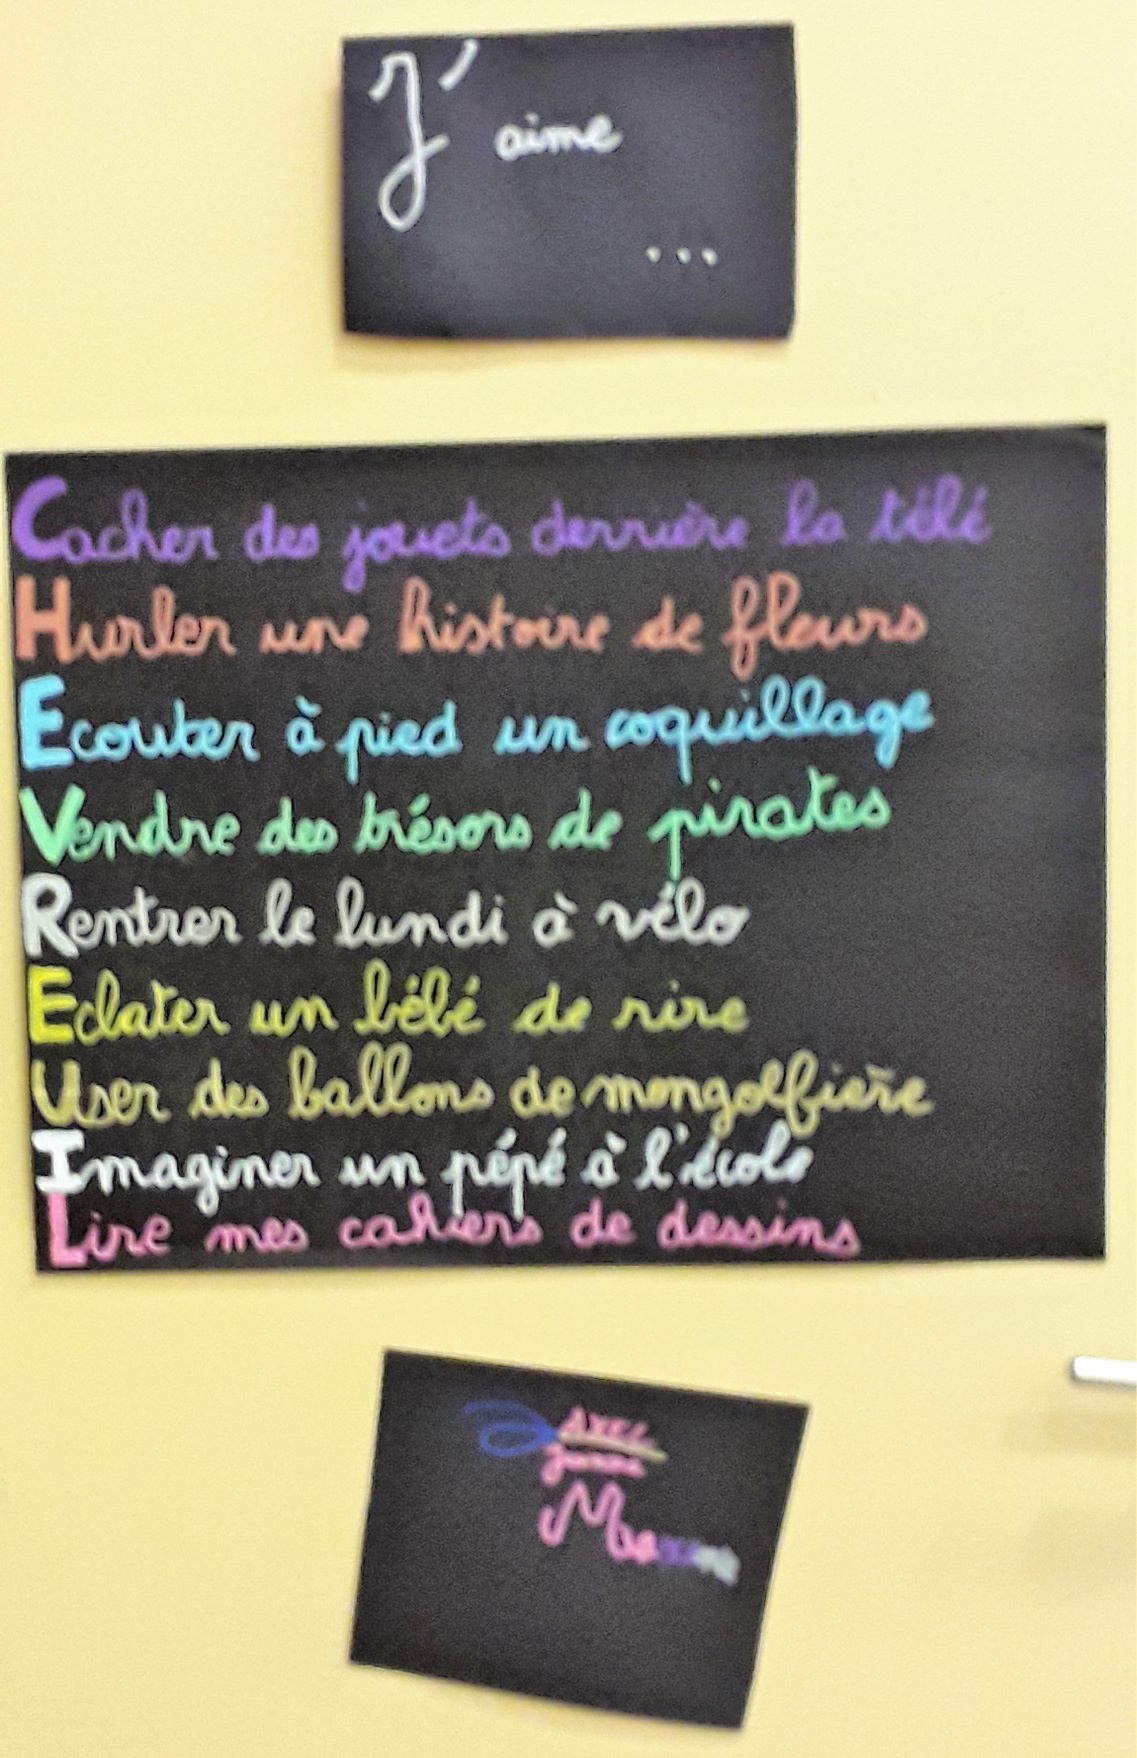 J'aime
...
Cacher des jouets derrière la télé
Hurler une histoire de fleurs
Ecouter à pied un coquillage
Vendre des trésors de pirates
Rentrer le lundi à vélo
Eclater un bébé de rire
User des ballons de mongolfière
Imaginer un pépé à l'école
Lire mes cahiers de dessins
avec